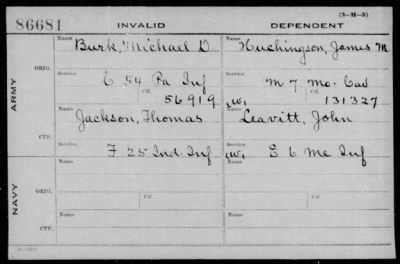 86681 INVALID DEPENDENT (3-21-5)
Name Burk, Michael D Name Huchingson, James M
ORIG. Service C 54 Pa Inf Service M 7 Mo. Cav
Ctf. 56919 (W) Ctf. 131327
ARMY
Name Jackson, Thomas Name Leavitt, John
CTF. Service F 25 Ind. Inf Service (W) E 6 Me Inf
NAVY
Name Name
ORIG. Service Ctf. Service Ctf.
Name Name
CTF. Service Service